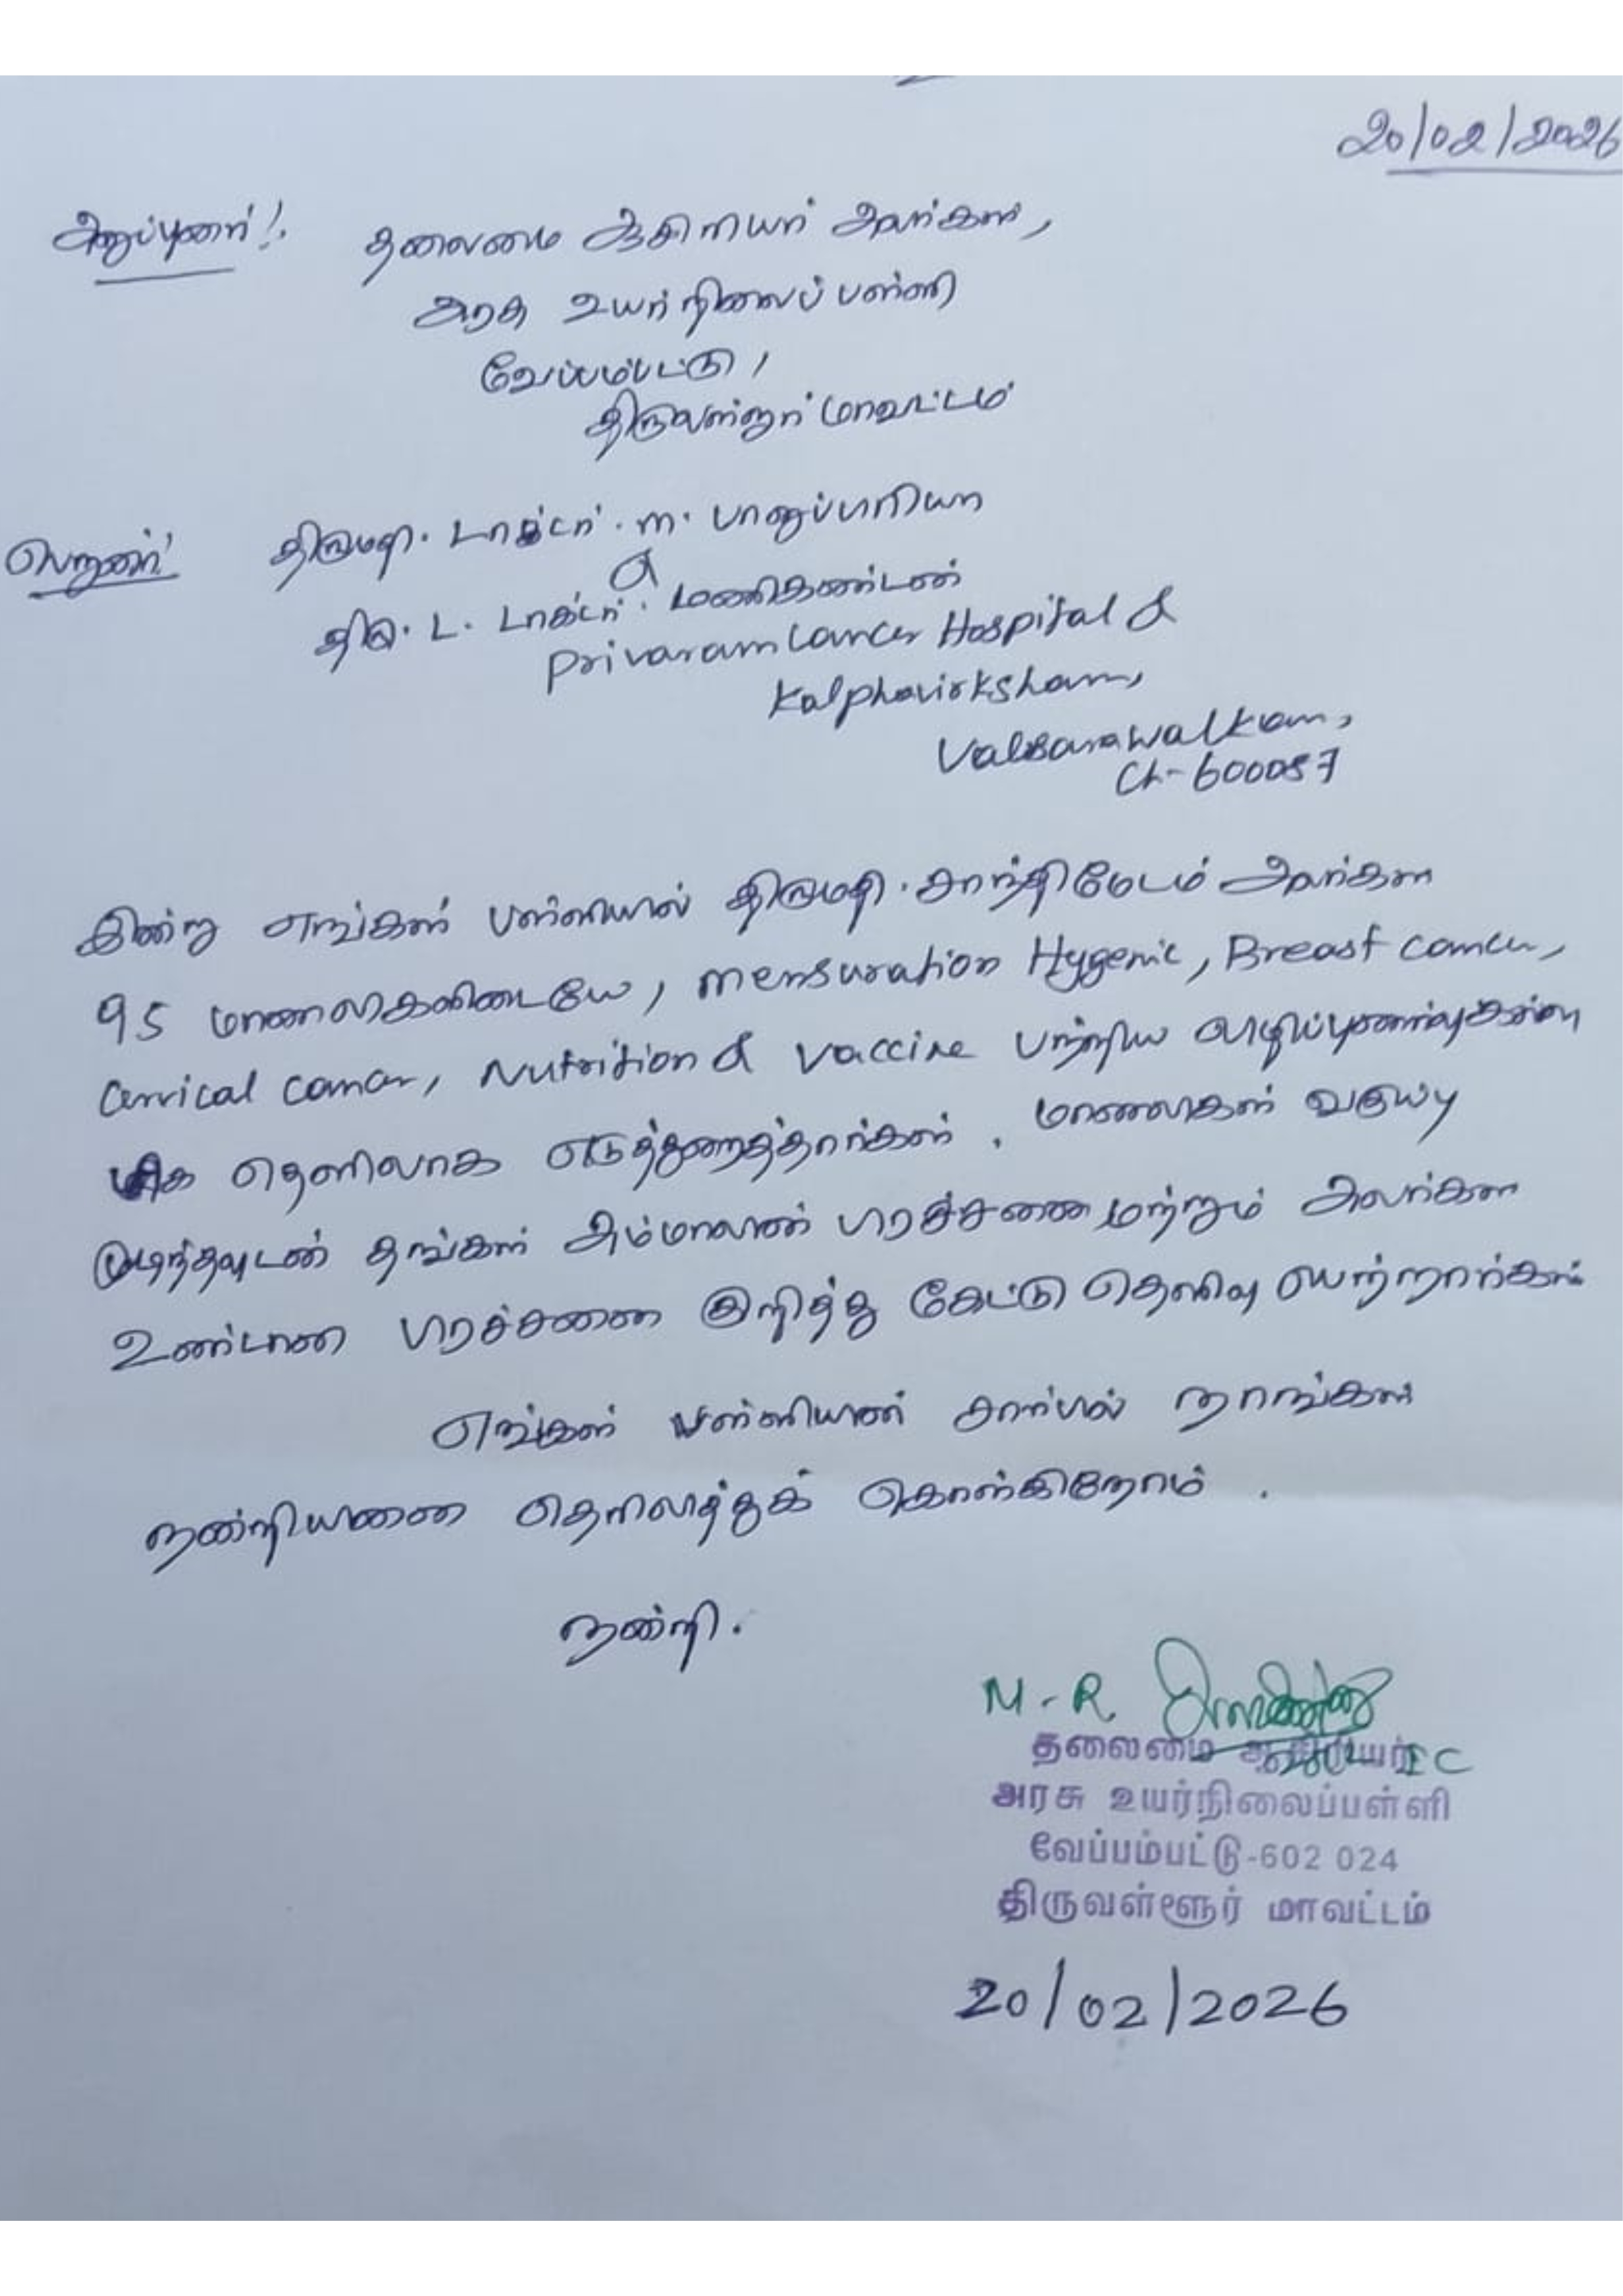 20/02/2026
அனுப்புனர்!.
தலைமை ஆசிரியர் அவர்கள்,
அரசு உயர்நிலைப் பள்ளி
வேப்பம்பட்டு,
திருவள்ளூர் மாவட்டம்
பெறுனர்
திருமதி. டாக்டர். m. பானுப்பிரியா
&
திரு. டாக்டர். மணிகண்டன்
Privaram Cancer Hospital &
Kalphavirksham,
Valsarawalkam,
Ch-600087
இன்று எங்கள் பள்ளியில் திருமதி. சாந்தி மேடம் அவர்கள்
95 மாணவிகளிடையே, mensuration Hygenic, Breast cancer,
Cervical cancer, Nutrition & Vaccine பற்றிய விழிப்புணர்வுகள்
மிக தெளிவாக எடுத்துரைத்தார்கள். மாணவிகள் வகுப்பு
முடிந்தவுடன் தங்கள் அம்மாவின் பிரச்சனை மற்றும் அவர்கள்
உண்டான பிரச்சனை குறித்து கேட்டு தெளிவு பெற்றார்கள்
எங்கள் பள்ளியின் சார்பில் நாங்கள்
நன்றியினை தெரிவித்துக் கொள்கிறோம்.
நன்றி.
M.R.
தலைமை ஆசிரியர்
அரசு உயர்நிலைப்பள்ளி
வேப்பம்பட்டு-602 024
திருவள்ளூர் மாவட்டம்
20/02/2026